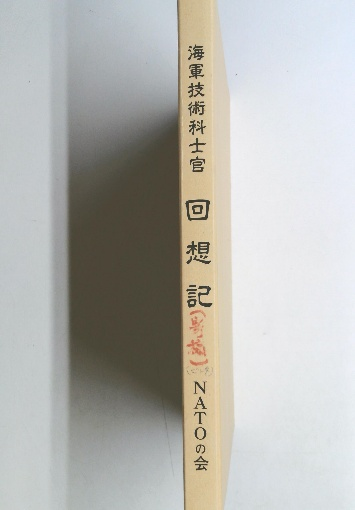 海軍技術科士官
回想記
NATOの会